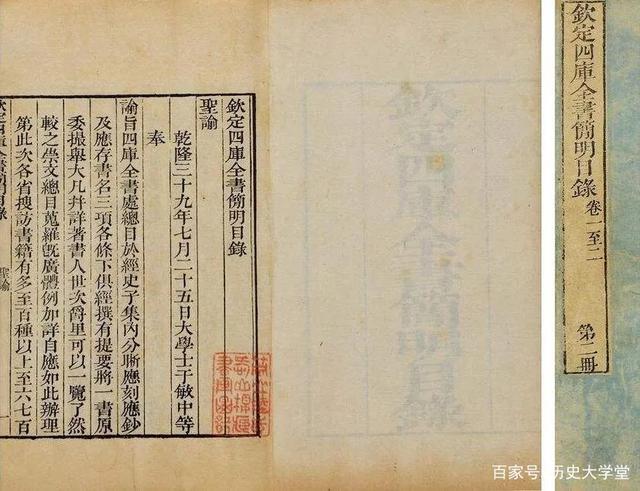 欽定四庫全書簡明目錄 卷一至二 第二冊
欽定四庫全書簡明目錄
欽定四庫全書簡明目錄
聖諭
乾隆三十九年七月二十五日大學士于敏中等
奉
諭旨四庫全書處總目於經史子集內分晰應刻應鈔
及應存書名三項各條下俱經撰有提要將一書原
委撮舉大凡幷詳著書人世次爵里可以一覽了然
較之崇文總目蒐羅旣廣體例加詳自應如此辦理
第此次各省搜訪書籍有多至百種以上至六七百
欽定四庫全書簡明目錄 聖諭
百家号/历史大学堂